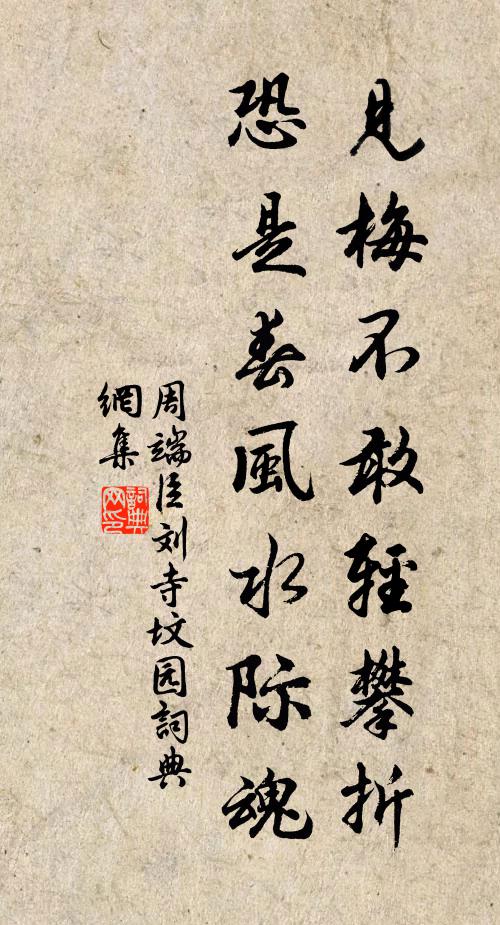 見梅不敢輕攀折
恐是春風水际魂
周端臣刘寺坟园詞典
網集
詞典
网印